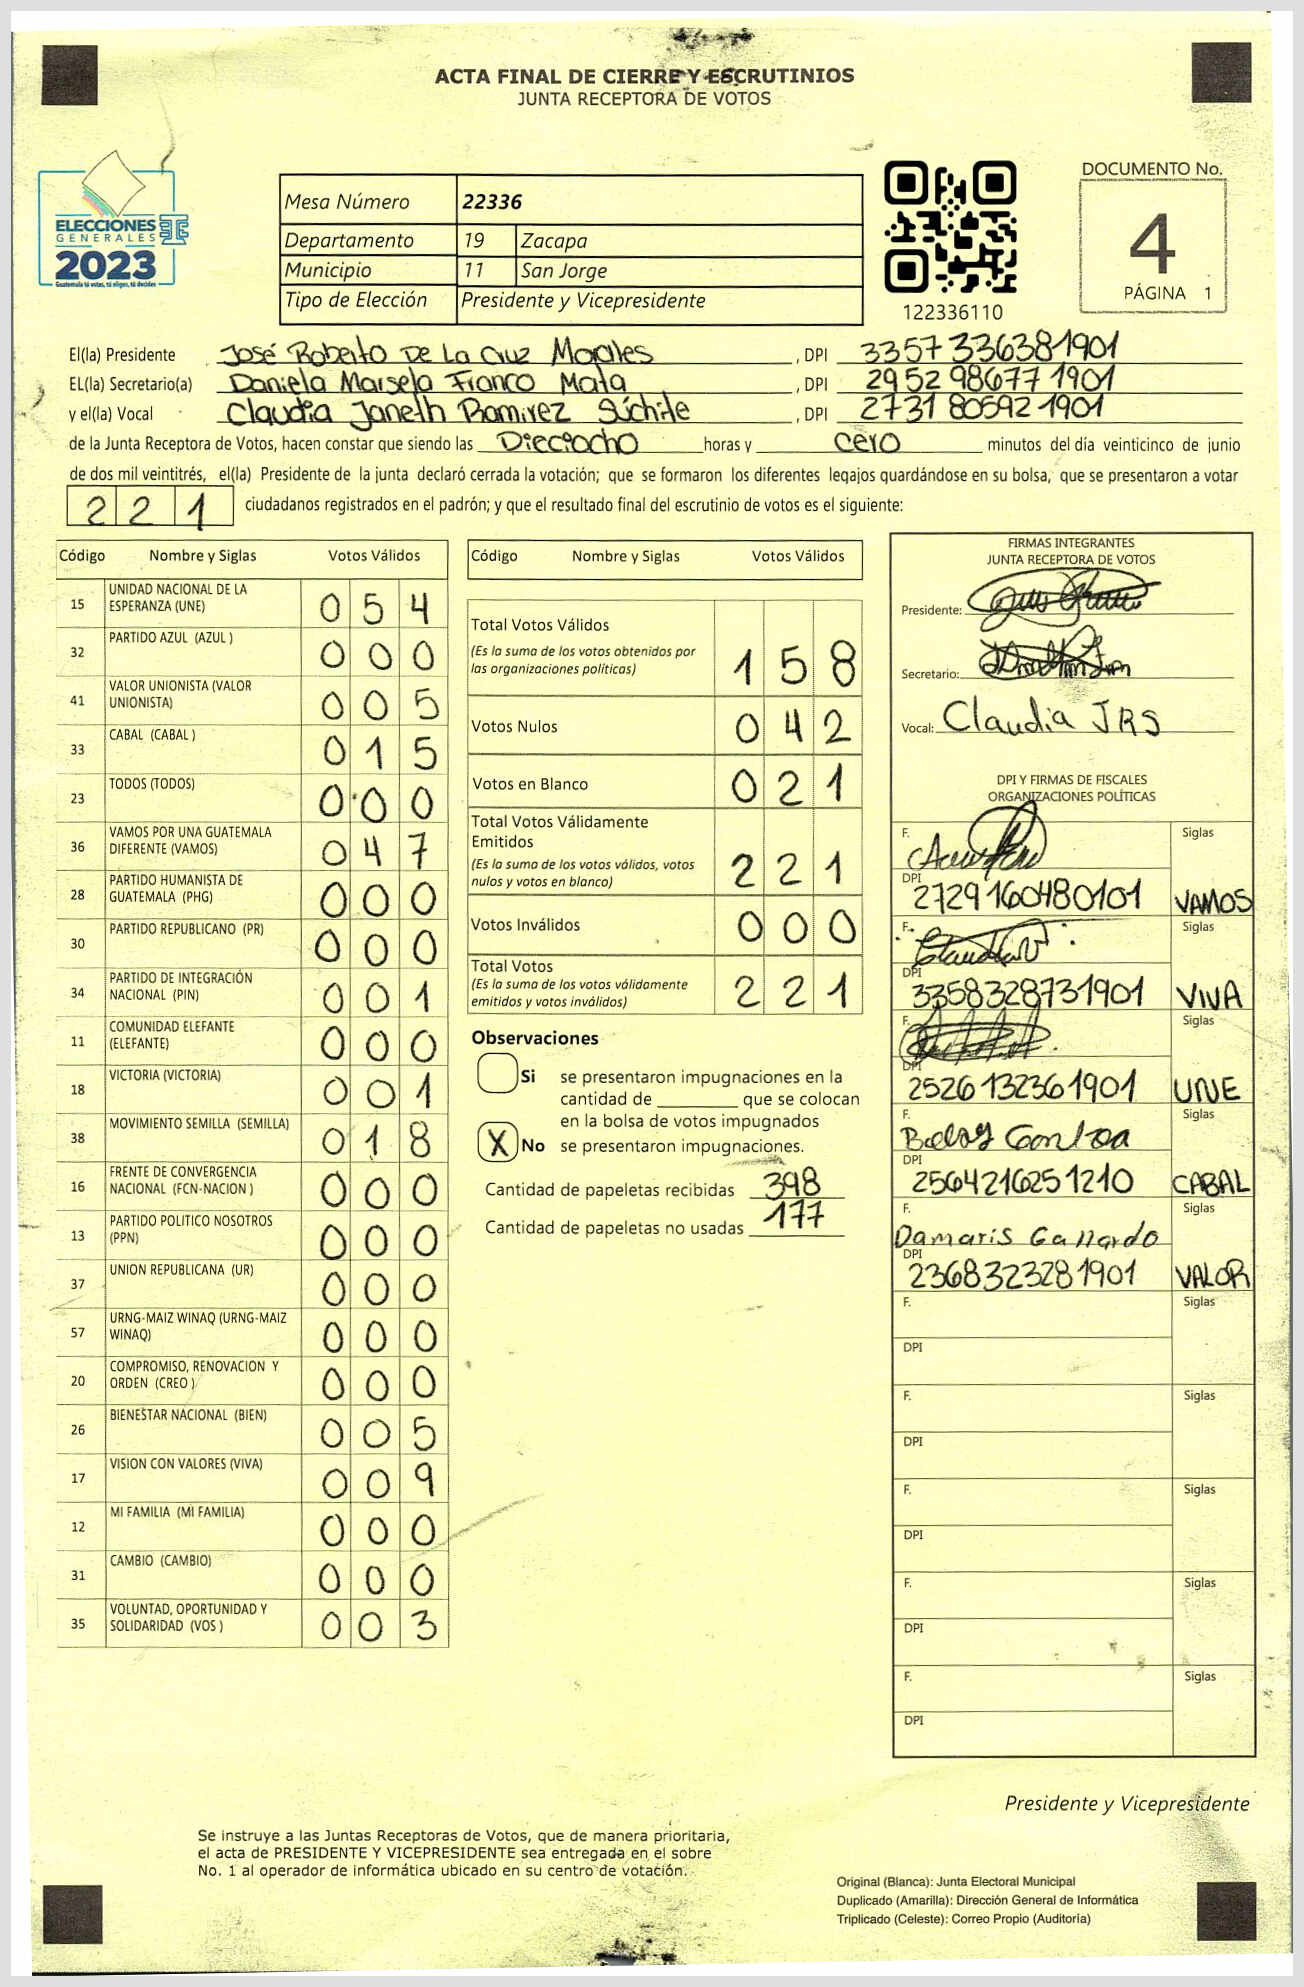 ACTA FINAL DE CIERRE Y ESCRUTINIOS
JUNTA RECEPTORA DE VOTOS
ELECCIONES
GENERALES
2023
Guatemala tú votas, tú eliges, tú decides
Mesa Número 22336
Departamento 19 Zacapa
Municipio 11 San Jorge
Tipo de Elección Presidente y Vicepresidente
122336110
DOCUMENTO No.
4
PÁGINA 1
El(la) Presidente José Roberto De La Cruz Morales, DPI 3357 33638 1901
EL(la) Secretario(a) Daniela Marsela Franco Mata, DPI 2952 98677 1901
y el(la) Vocal Claudia Janeth Ramirez Súchite, DPI 2731 80592 1901
de la Junta Receptora de Votos, hacen constar que siendo las Dieciocho horas y cero minutos del día veinticinco de junio
de dos mil veintitrés, el(la) Presidente de la junta declaró cerrada la votación; que se formaron los diferentes legajos quardándose en su bolsa; que se presentaron a votar
221 ciudadanos registrados en el padrón; y que el resultado final del escrutinio de votos es el siguiente:
Código Nombre y Siglas Votos Válidos
15 UNIDAD NACIONAL DE LA ESPERANZA (UNE) 054
32 PARTIDO AZUL (AZUL ) 000
41 VALOR UNIONISTA (VALOR UNIONISTA) 005
33 CABAL (CABAL ) 015
23 TODOS (TODOS) 000
36 VAMOS POR UNA GUATEMALA DIFERENTE (VAMOS) 047
28 PARTIDO HUMANISTA DE GUATEMALA (PHG) 000
30 PARTIDO REPUBLICANO (PR) 000
34 PARTIDO DE INTEGRACIÓN NACIONAL (PIN) 001
11 COMUNIDAD ELEFANTE (ELEFANTE) 000
18 VICTORIA (VICTORIA) 001
38 MOVIMIENTO SEMILLA (SEMILLA) 018
16 FRENTE DE CONVERGENCIA NACIONAL (FCN-NACION ) 000
13 PARTIDO POLITICO NOSOTROS (PPN) 000
37 UNION REPUBLICANA (UR) 000
57 URNG-MAIZ WINAQ (URNG-MAIZ WINAQ) 000
20 COMPROMISO, RENOVACION Y ORDEN (CREO ) 000
26 BIENESTAR NACIONAL (BIEN) 005
17 VISION CON VALORES (VIVA) 009
12 MI FAMILIA (MI FAMILIA) 000
31 CAMBIO (CAMBIO) 000
35 VOLUNTAD, OPORTUNIDAD Y SOLIDARIDAD (VOS ) 003
Código Nombre y Siglas Votos Válidos
Total Votos Válidos
(Es la suma de los votos obtenidos por
las organizaciones políticas) 158
Votos Nulos 042
Votos en Blanco 021
Total Votos Válidamente
Emitidos
(Es la suma de los votos válidos, votos
nulos y votos en blanco) 221
Votos Inválidos 000
Total Votos
(Es la suma de los votos válidamente
emitidos y votos inválidos) 221
Observaciones
Si se presentaron impugnaciones en la
cantidad de ________ que se colocan
en la bolsa de votos impugnados
X No se presentaron impugnaciones.
Cantidad de papeletas recibidas 398
Cantidad de papeletas no usadas 177
FIRMAS INTEGRANTES
JUNTA RECEPTORA DE VOTOS
Presidente:
Secretario:
Vocal: Claudia JRS
DPI Y FIRMAS DE FISCALES
ORGANIZACIONES POLÍTICAS
F. Siglas
DPI 2729160480101 VAMOS
F. Siglas
DPI 3358328731901 VIVA
F. Siglas
DPI 2526132361901 UNE
F. Siglas
DPI 2564216251210 CABAL
F. Damaris Gallardo Siglas
DPI 2368323281901 VALOR
F. Siglas
DPI
F. Siglas
DPI
F. Siglas
DPI
F. Siglas
DPI
F. Siglas
DPI
Presidente y Vicepresidente
Se instruye a las Juntas Receptoras de Votos, que de manera prioritaria,
el acta de PRESIDENTE Y VICEPRESIDENTE sea entregada en el sobre
No. 1 al operador de informática ubicado en su centro de votación.
Original (Blanca): Junta Electoral Municipal
Duplicado (Amarilla): Dirección General de Informática
Triplicado (Celeste): Correo Propio (Auditoría)